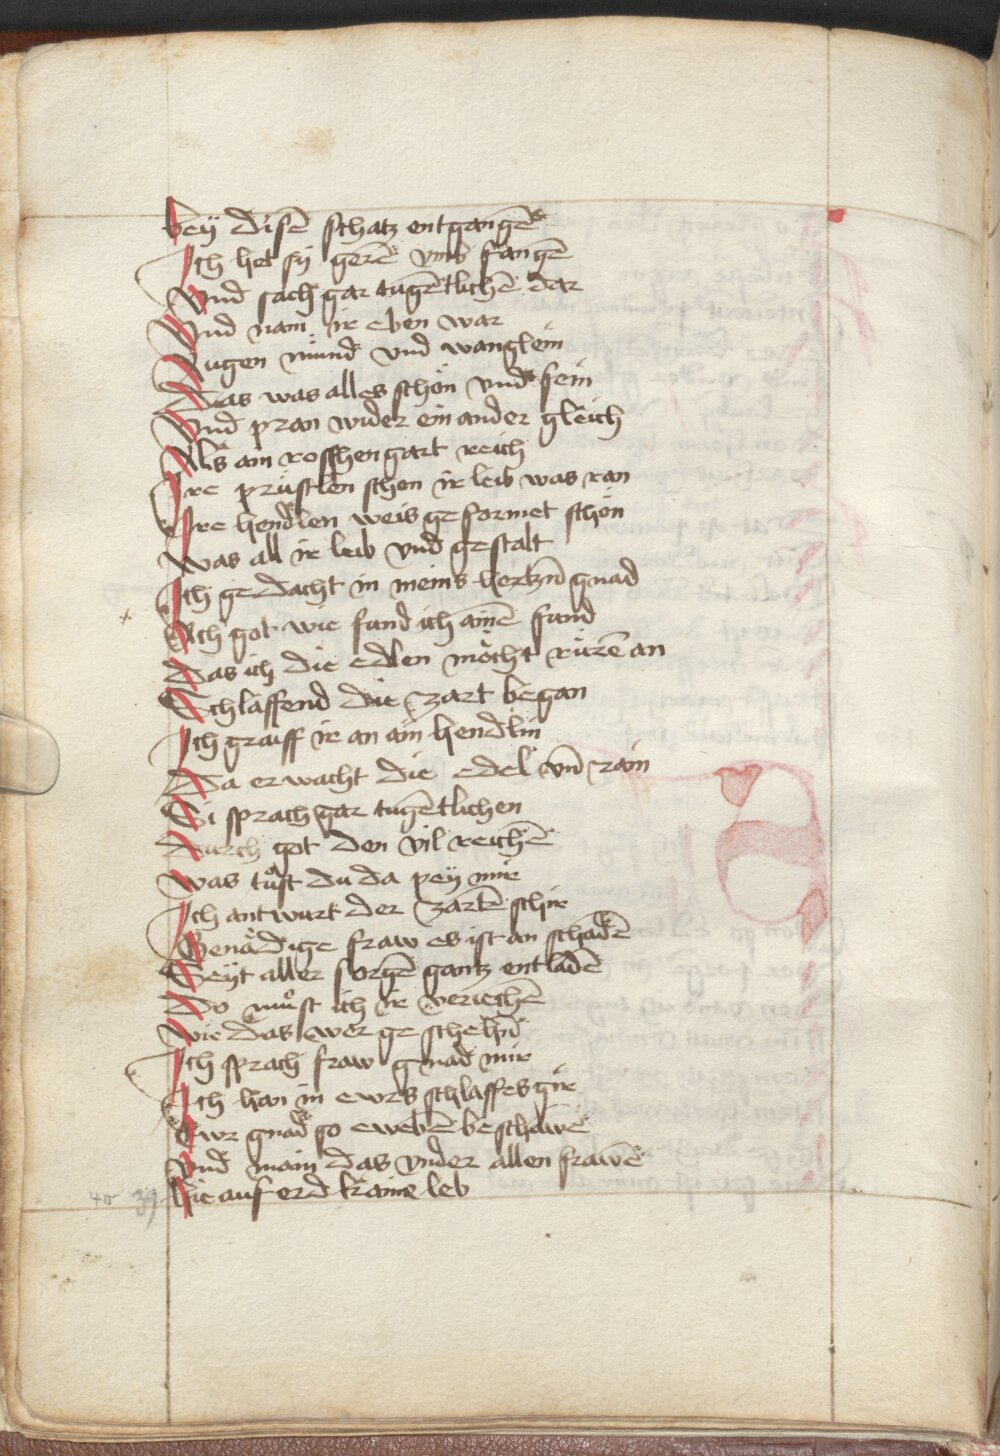 bey disē schatz entgangē
Ich het sy gerē vmb fangē
Vnd sach gar tugētlichē dar
Vnd nam ir eben war
Augen mund vnd wanglein
Das was alles schön vnd fein
Vnd pran wider ein ander gleich
Als ain rosshengart reich
Ire prüstlen schon ir leib was ran
Ire hendlen weis geformet schön
Was all ir leib vnd gestalt
Ich gedacht in meins hertzn gnad
Ach got wie fand ich ainē fand
Das ich die edlen möcht rürē an
Schlaffend die zart began
Ich graiff ir an ain hendlin
Da erwacht die edel vn̄ rain
Si sprach gar tugētlichen
Durch got den vil reichē
Was tůst du da pey mir
Ich antwurt der zartē schir
Genädige fraw es ist an schadē
Seyt aller sorgē gantz entladē
Do můst ich ir veriechē
Wie das wer geschehn̄
Ich sprach fraw gnad mir
Ich han in ewrs schlaffes gir
Ewr gnad so ewebē beschawē
Vnd main das vnder allen frawē
Hie auf erd kaine leb
40 39